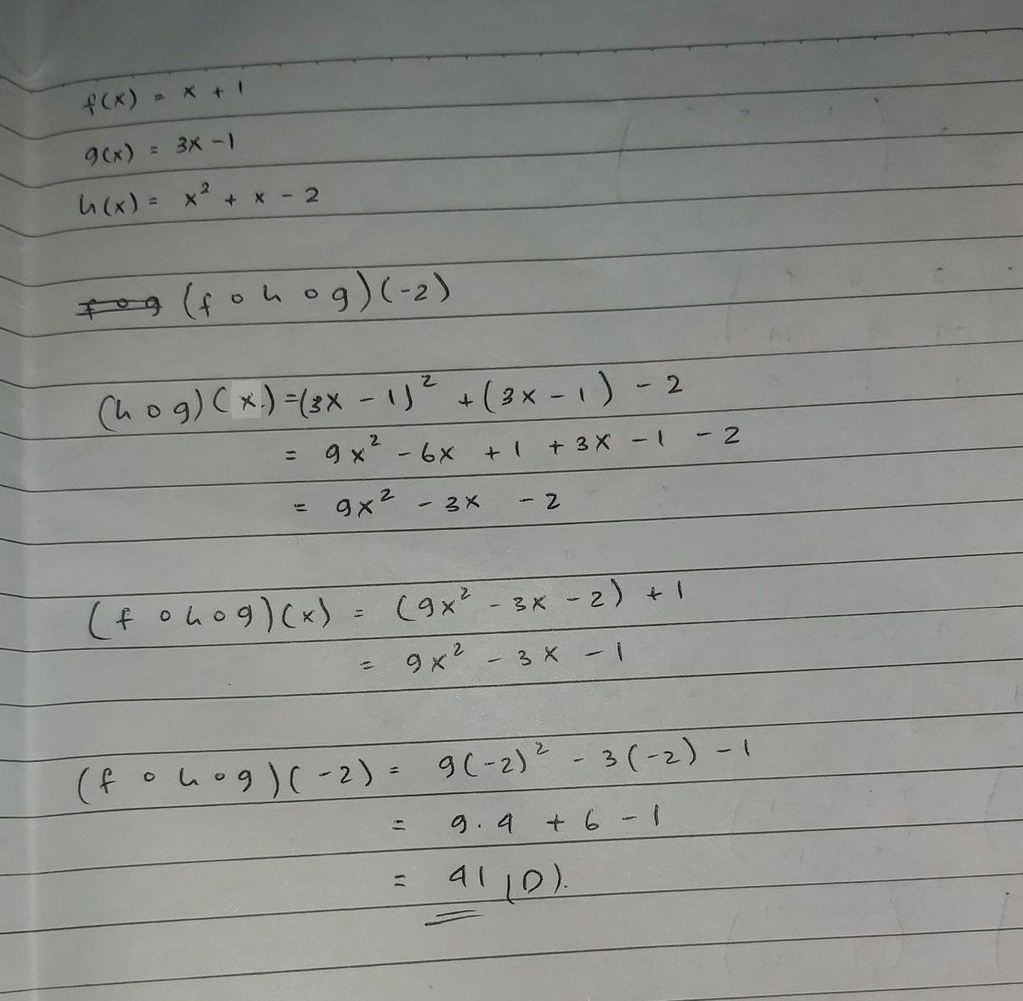 f(x) = x + 1
g(x) = 3x - 1
h(x) = x² + x - 2
(f o h o g)(-2)
(h o g)(x) = (3x - 1)² + (3x - 1) - 2
= 9x² - 6x + 1 + 3x - 1 - 2
= 9x² - 3x - 2
(f o h o g)(x) = (9x² - 3x - 2) + 1
= 9x² - 3x - 1
(f o h o g)(-2) = 9(-2)² - 3(-2) - 1
= 9.4 + 6 - 1
= 41 (D).